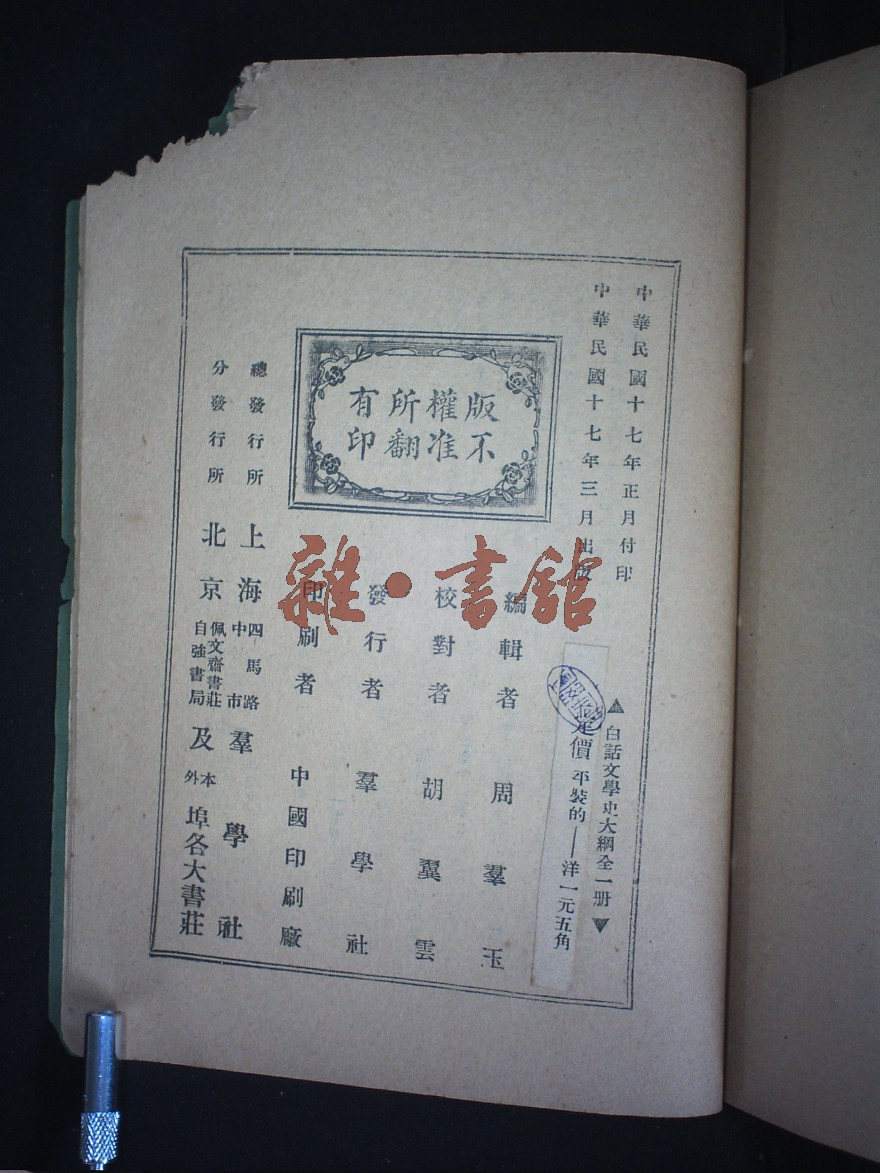 中華民國十七年正月付印
中華民國十七年三月出版
▲白話文學史大綱全一册▼
定價 平裝的——洋一元五角
版權所有
不准翻印
編輯者 周羣玉
校對者 胡翼雲
發行者 羣學社
印刷者 中國印刷廠
總發行所 上海四馬路中市羣學社
分發行所 北京佩文齋書莊自強書局及本外埠各大書莊
雜·書館